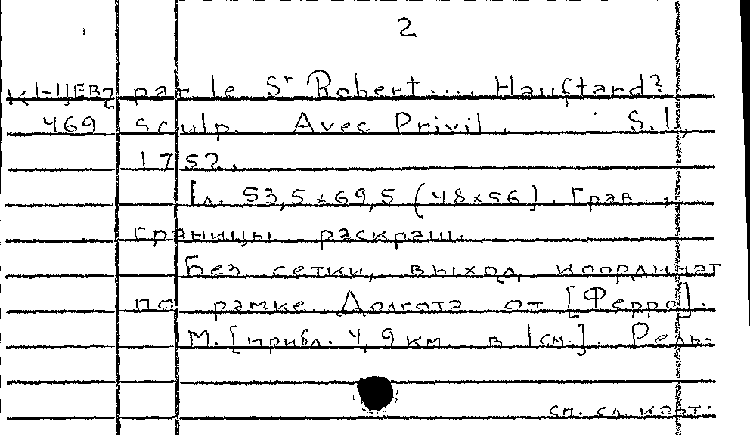 2
К 1-Ц/ЕВ2 par le Sr Robert.... Hauſsard?
469 sculp. Avec Privil. S.l.,
1752.
1 л. 53,5 x 69,5 (48 x 56). Грав.,
границы раскраш.
Без сетки, выход координат
по рамке. Долгота от [Ферро].
М. [прибл. 4,9 км в 1 см.]. Рель-
см. сл. карт.